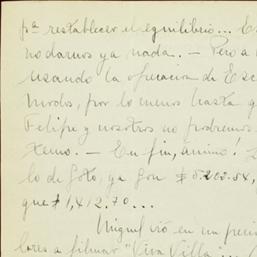 pª restablecer el equilibrio... E
no darnos ya nada. — Pero a
usando la operación de Esc
modos, por lo menos hasta q
Felipe y nosotros no podremos
temo. — En fin, ánimo!
lo de Soto, ya son $ 5.203.54,
que $ 1,412.70...
Miguel irá en un preci
lores a filmar "Viva Villa"...